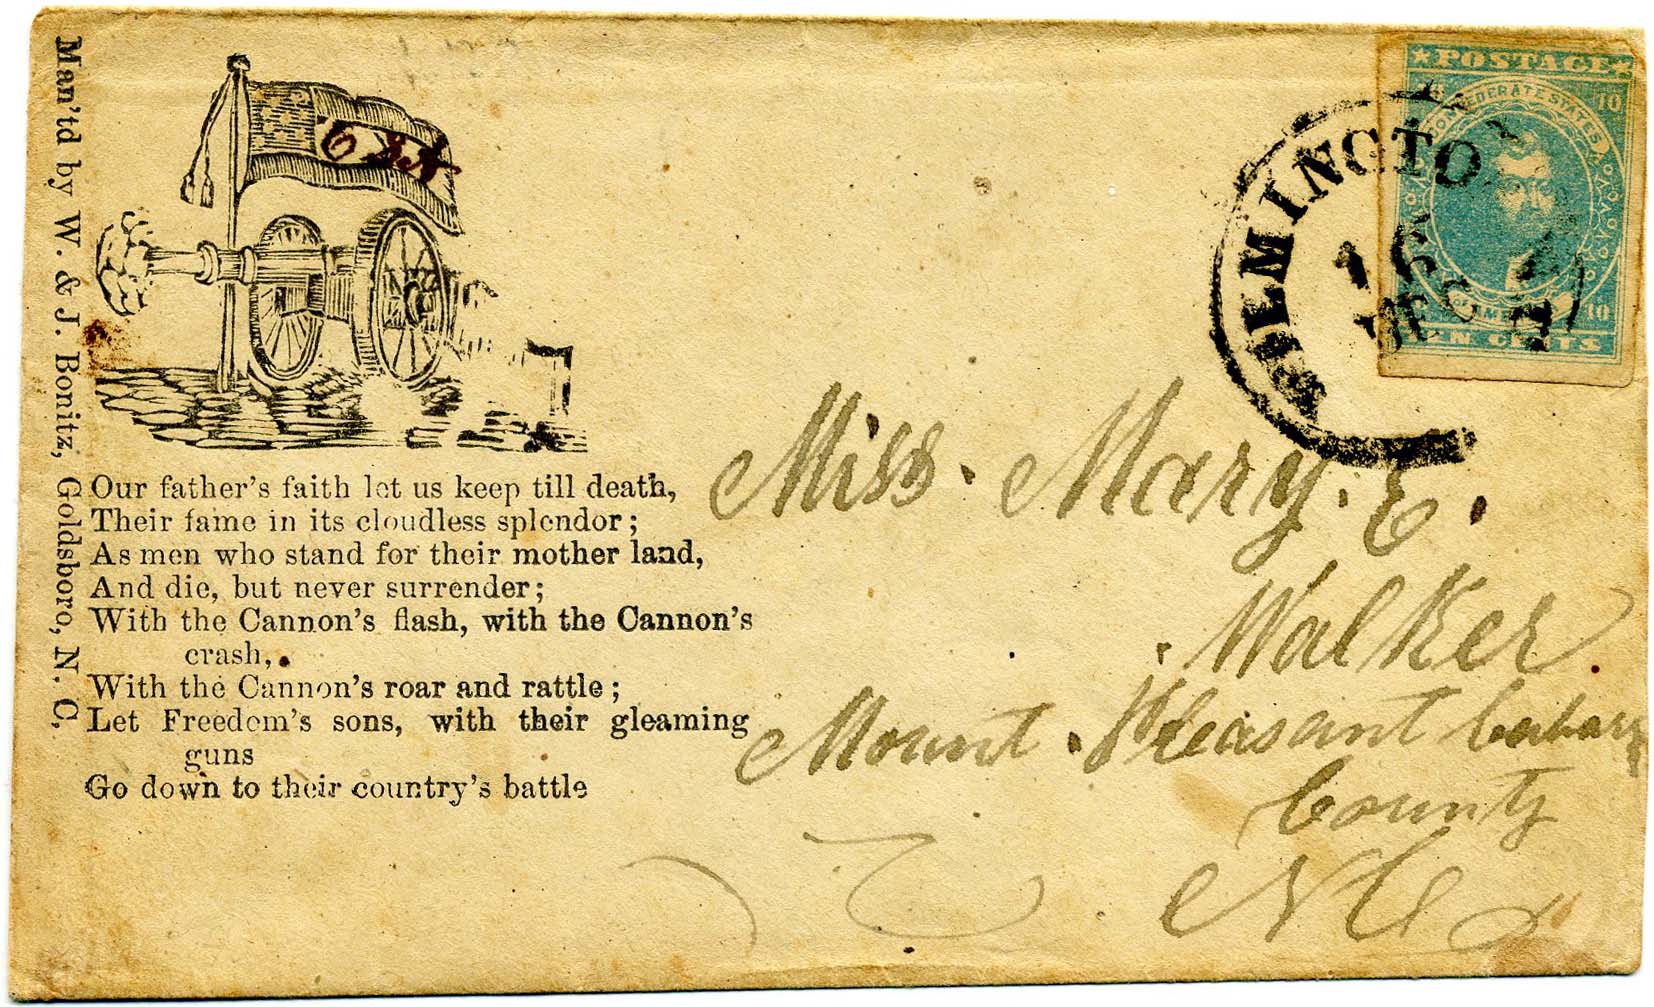 Man'td by W. & J. Bonitz, Goldsboro, N. C,
Our father's faith let us keep till death,
Their fame in its cloudless splendor;
As men who stand for their mother land,
And die, but never surrender;
With the Cannon's flash, with the Cannon's
crash,
With the Cannon's roar and rattle;
Let Freedom's sons, with their gleaming
guns
Go down to their country's battle
POSTAGE
10
CONFEDERATE STATES
OF AMERICA
10
TEN CENTS
WILMINGTON
DEC
Miss. Mary. E.
Walker
Mount Pleasant Cabarrus
County
NC